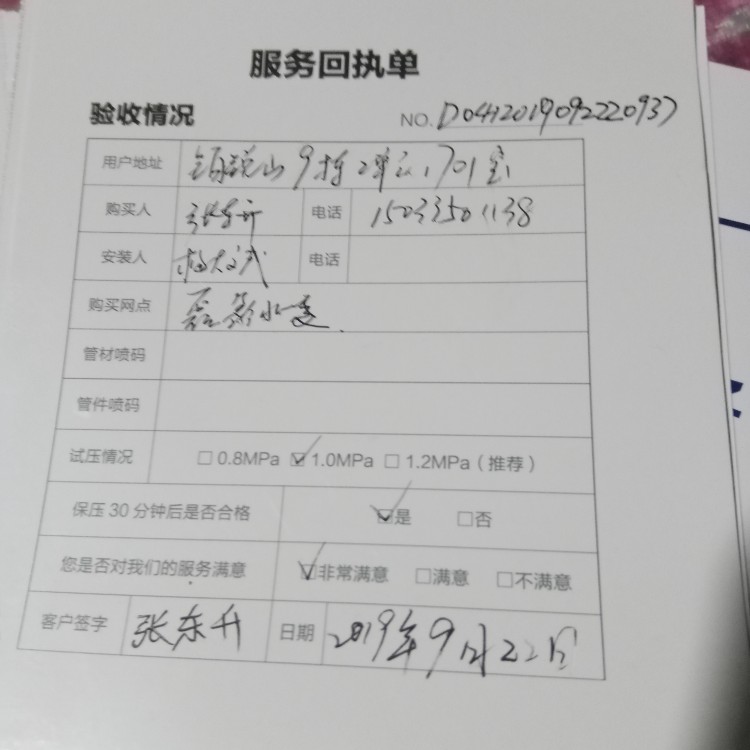 服务回执单
验收情况 NO. D0412019092220937
用户地址 山9栋2单元1701室
购买人 张东升 电话 15033501138
安装人 电话
购买网点
管材喷码
管件喷码
试压情况 □0.8MPa ☑1.0MPa □1.2MPa（推荐）
保压30分钟后是否合格 ☑是 □否
您是否对我们的服务满意 ☑非常满意 □满意 □不满意
客户签字 张东升 日期 2019年9月22日